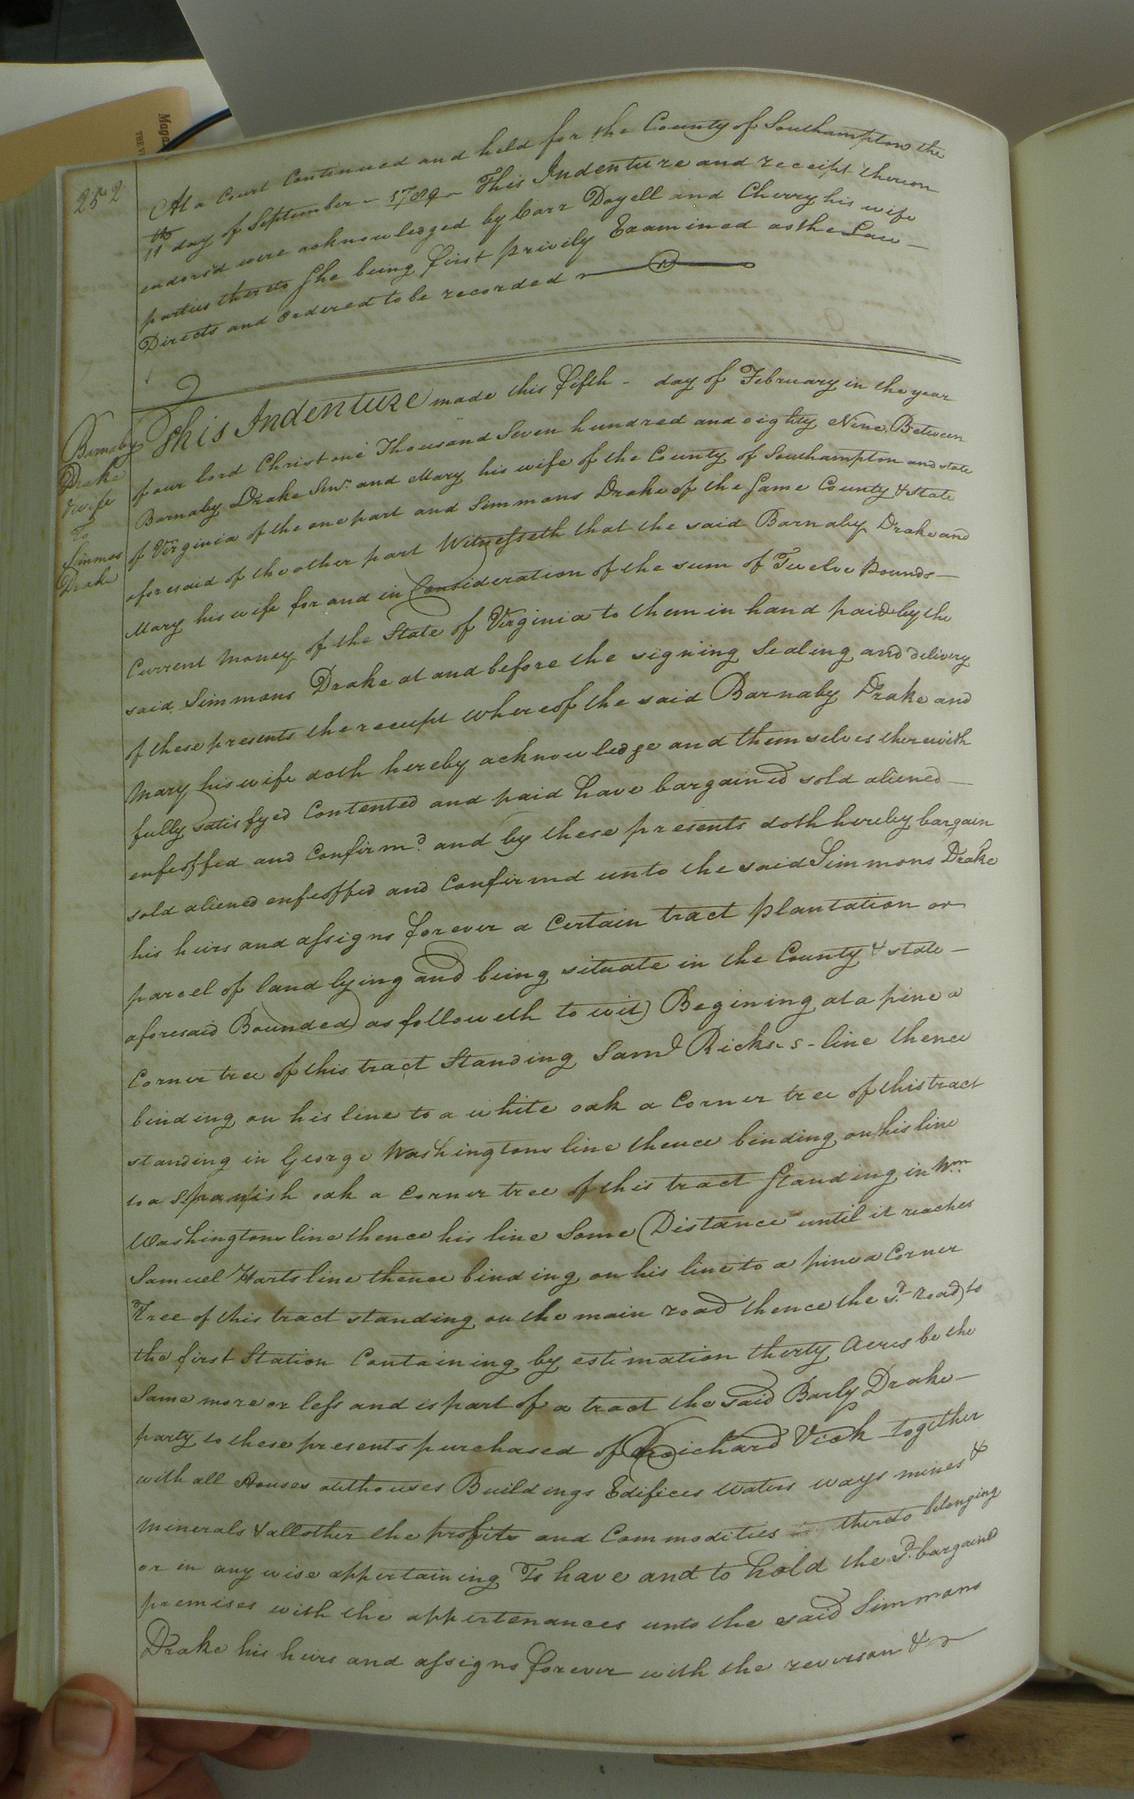 Maga
THE V
252
At a Court Continued and held for the County of Southampton the
11th day of September - 1789 - This Indenture and receipt thereon
endorsd were acknowledged by Carr Doyell and Cherry his wife
parties thereto She being first privily Examined as the Law -
Directs and Ordered to be recorded
Barnaby
Drake
& wife
To
Simmos
Drake
This Indenture made this fifth - day of February in the year
of our lord Christ one Thousand Seven hundred and eighty Nine Between
Barnaby Drake Senr. and Mary his wife of the County of Southampton and state
of Virginia of the one part and Simmons Drake of the Same County & State
aforesaid of the other part Witnesseth that the said Barnaby Drake and
Mary his wife for and in Consideration of the sum of Twelve Pounds -
Current Money of the State of Virginia to them in hand paid by the
said Simmons Drake at and before the signing Sealing and delivery
of these presents the receipt whereof the said Barnaby Drake and
Mary his wife doth hereby acknowledge and themselves therewith
fully satisfyed Contented and paid have bargained sold aliened -
enfeoffed and Confirmd. and by these presents doth hereby bargain
sold aliened enfeoffed and Confirmd unto the said Simmons Drake
his heirs and assigns forever a Certain tract plantation or
parcel of land lying and being situate in the County & state -
aforesaid Bounded as followeth to wit) Begining at a pine a
Corner tree of this tract Standing Saml Ricks-s - line thence
binding on his line to a white oak a Corner tree of this tract
standing in George Washingtons line thence binding on his line
to a Spanish oak a Corner tree of this tract Standing in Wm
Washingtons line thence his line Some Distance until it reaches
Samuel Harts line thence binding on his line to a pine a Corner
Tree of this tract standing on the main road thence the sd. road to
the first Station Containing by estimation therty Acres be the
Same more or less and is part of a tract the said Barby Drake -
party to these presents purchased of Richard Vick together
with all Houses outhouses Buildings Edifices waters ways mines &
minerals & all other the profits and Commodities thereto belonging
or in any wise appertaining To have and to hold the sd. bargained
premises with the appertenances unto the said Simmons
Drake his heirs and assigns forever with the reversion &